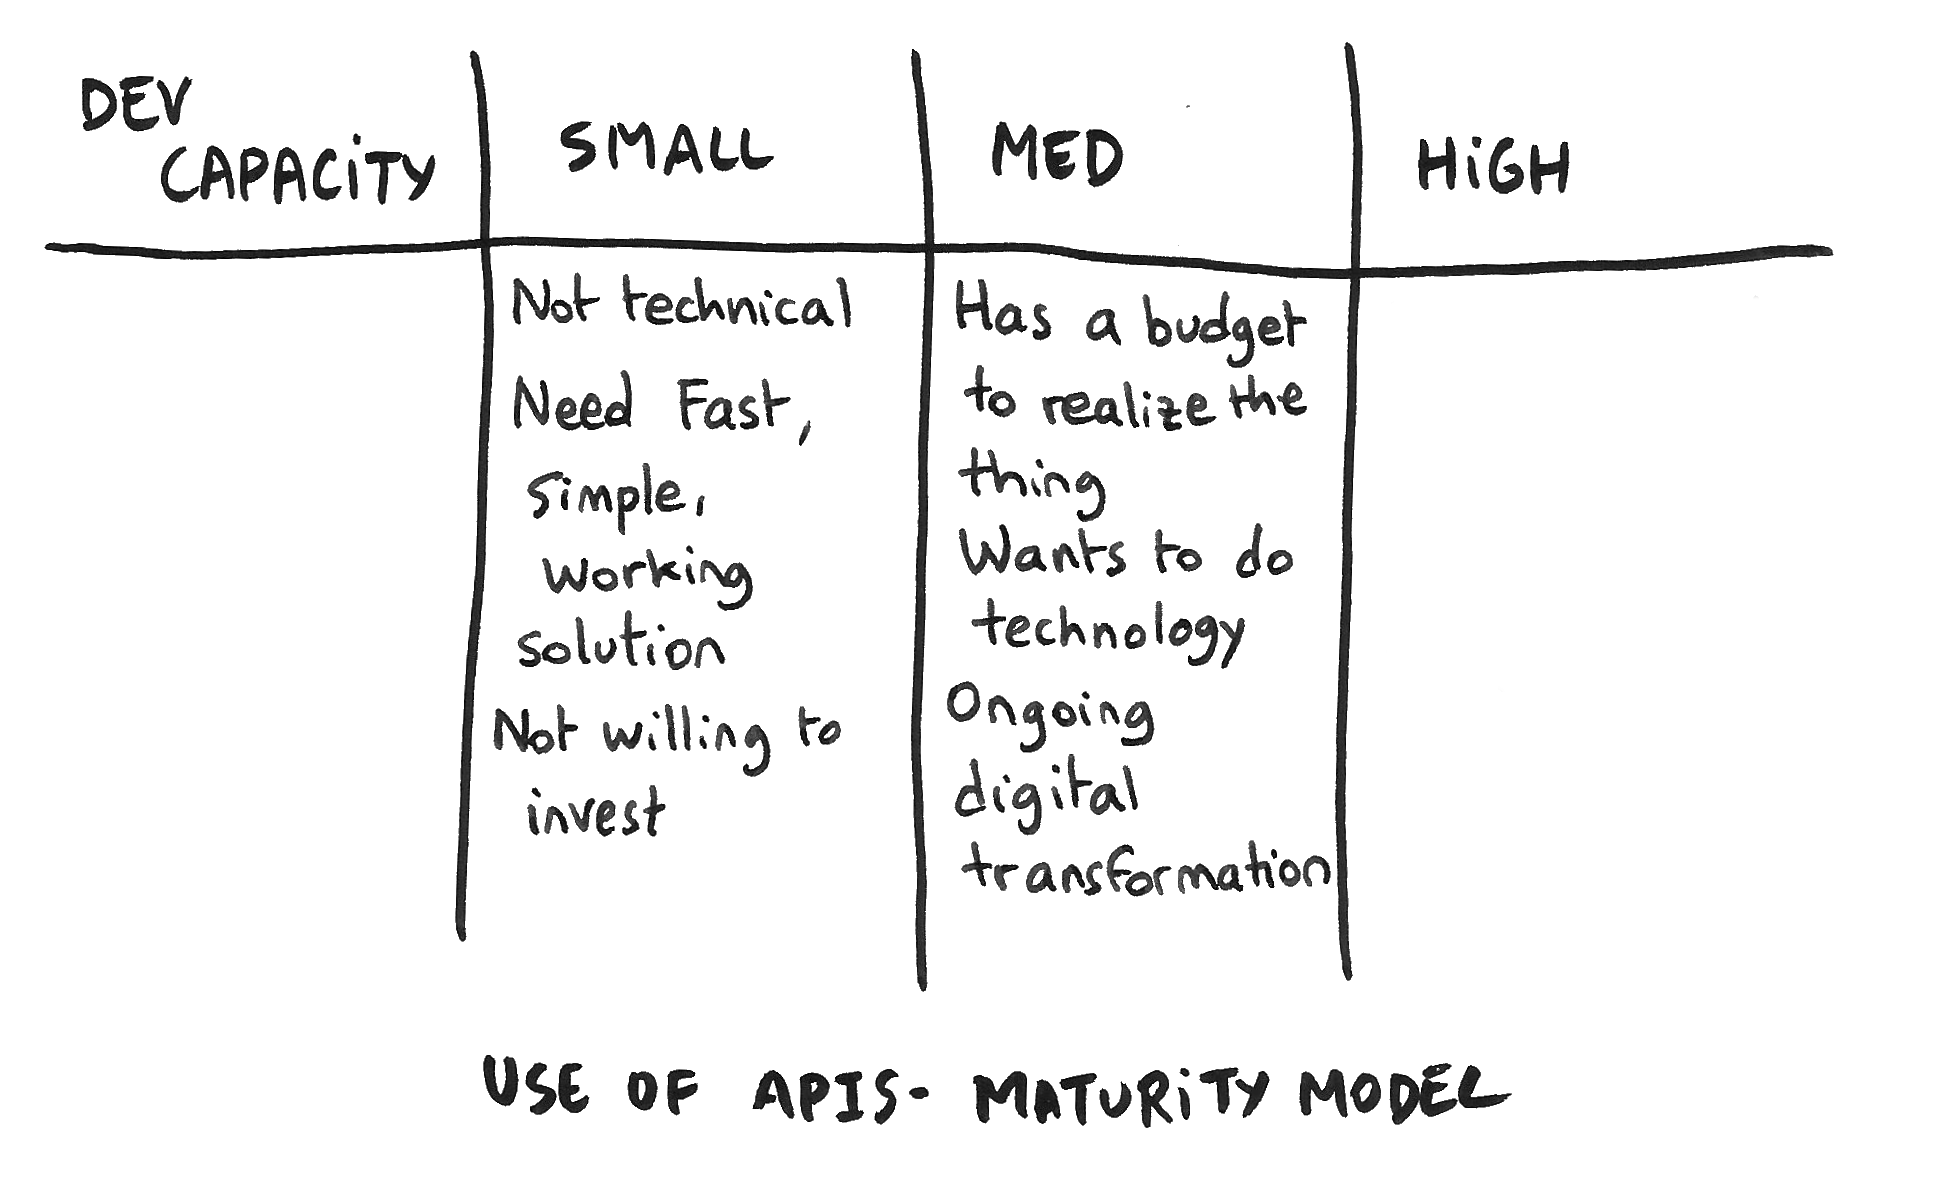 DEV
CAPACiTY
SMALL
MED
HiGH
Not technical
Need Fast,
simple,
working
solution
Not willing to
invest
Has a budget
to realize the
thing
Wants to do
technology
Ongoing
digital
transformation
USE OF APIS- MATURiTY MODEL